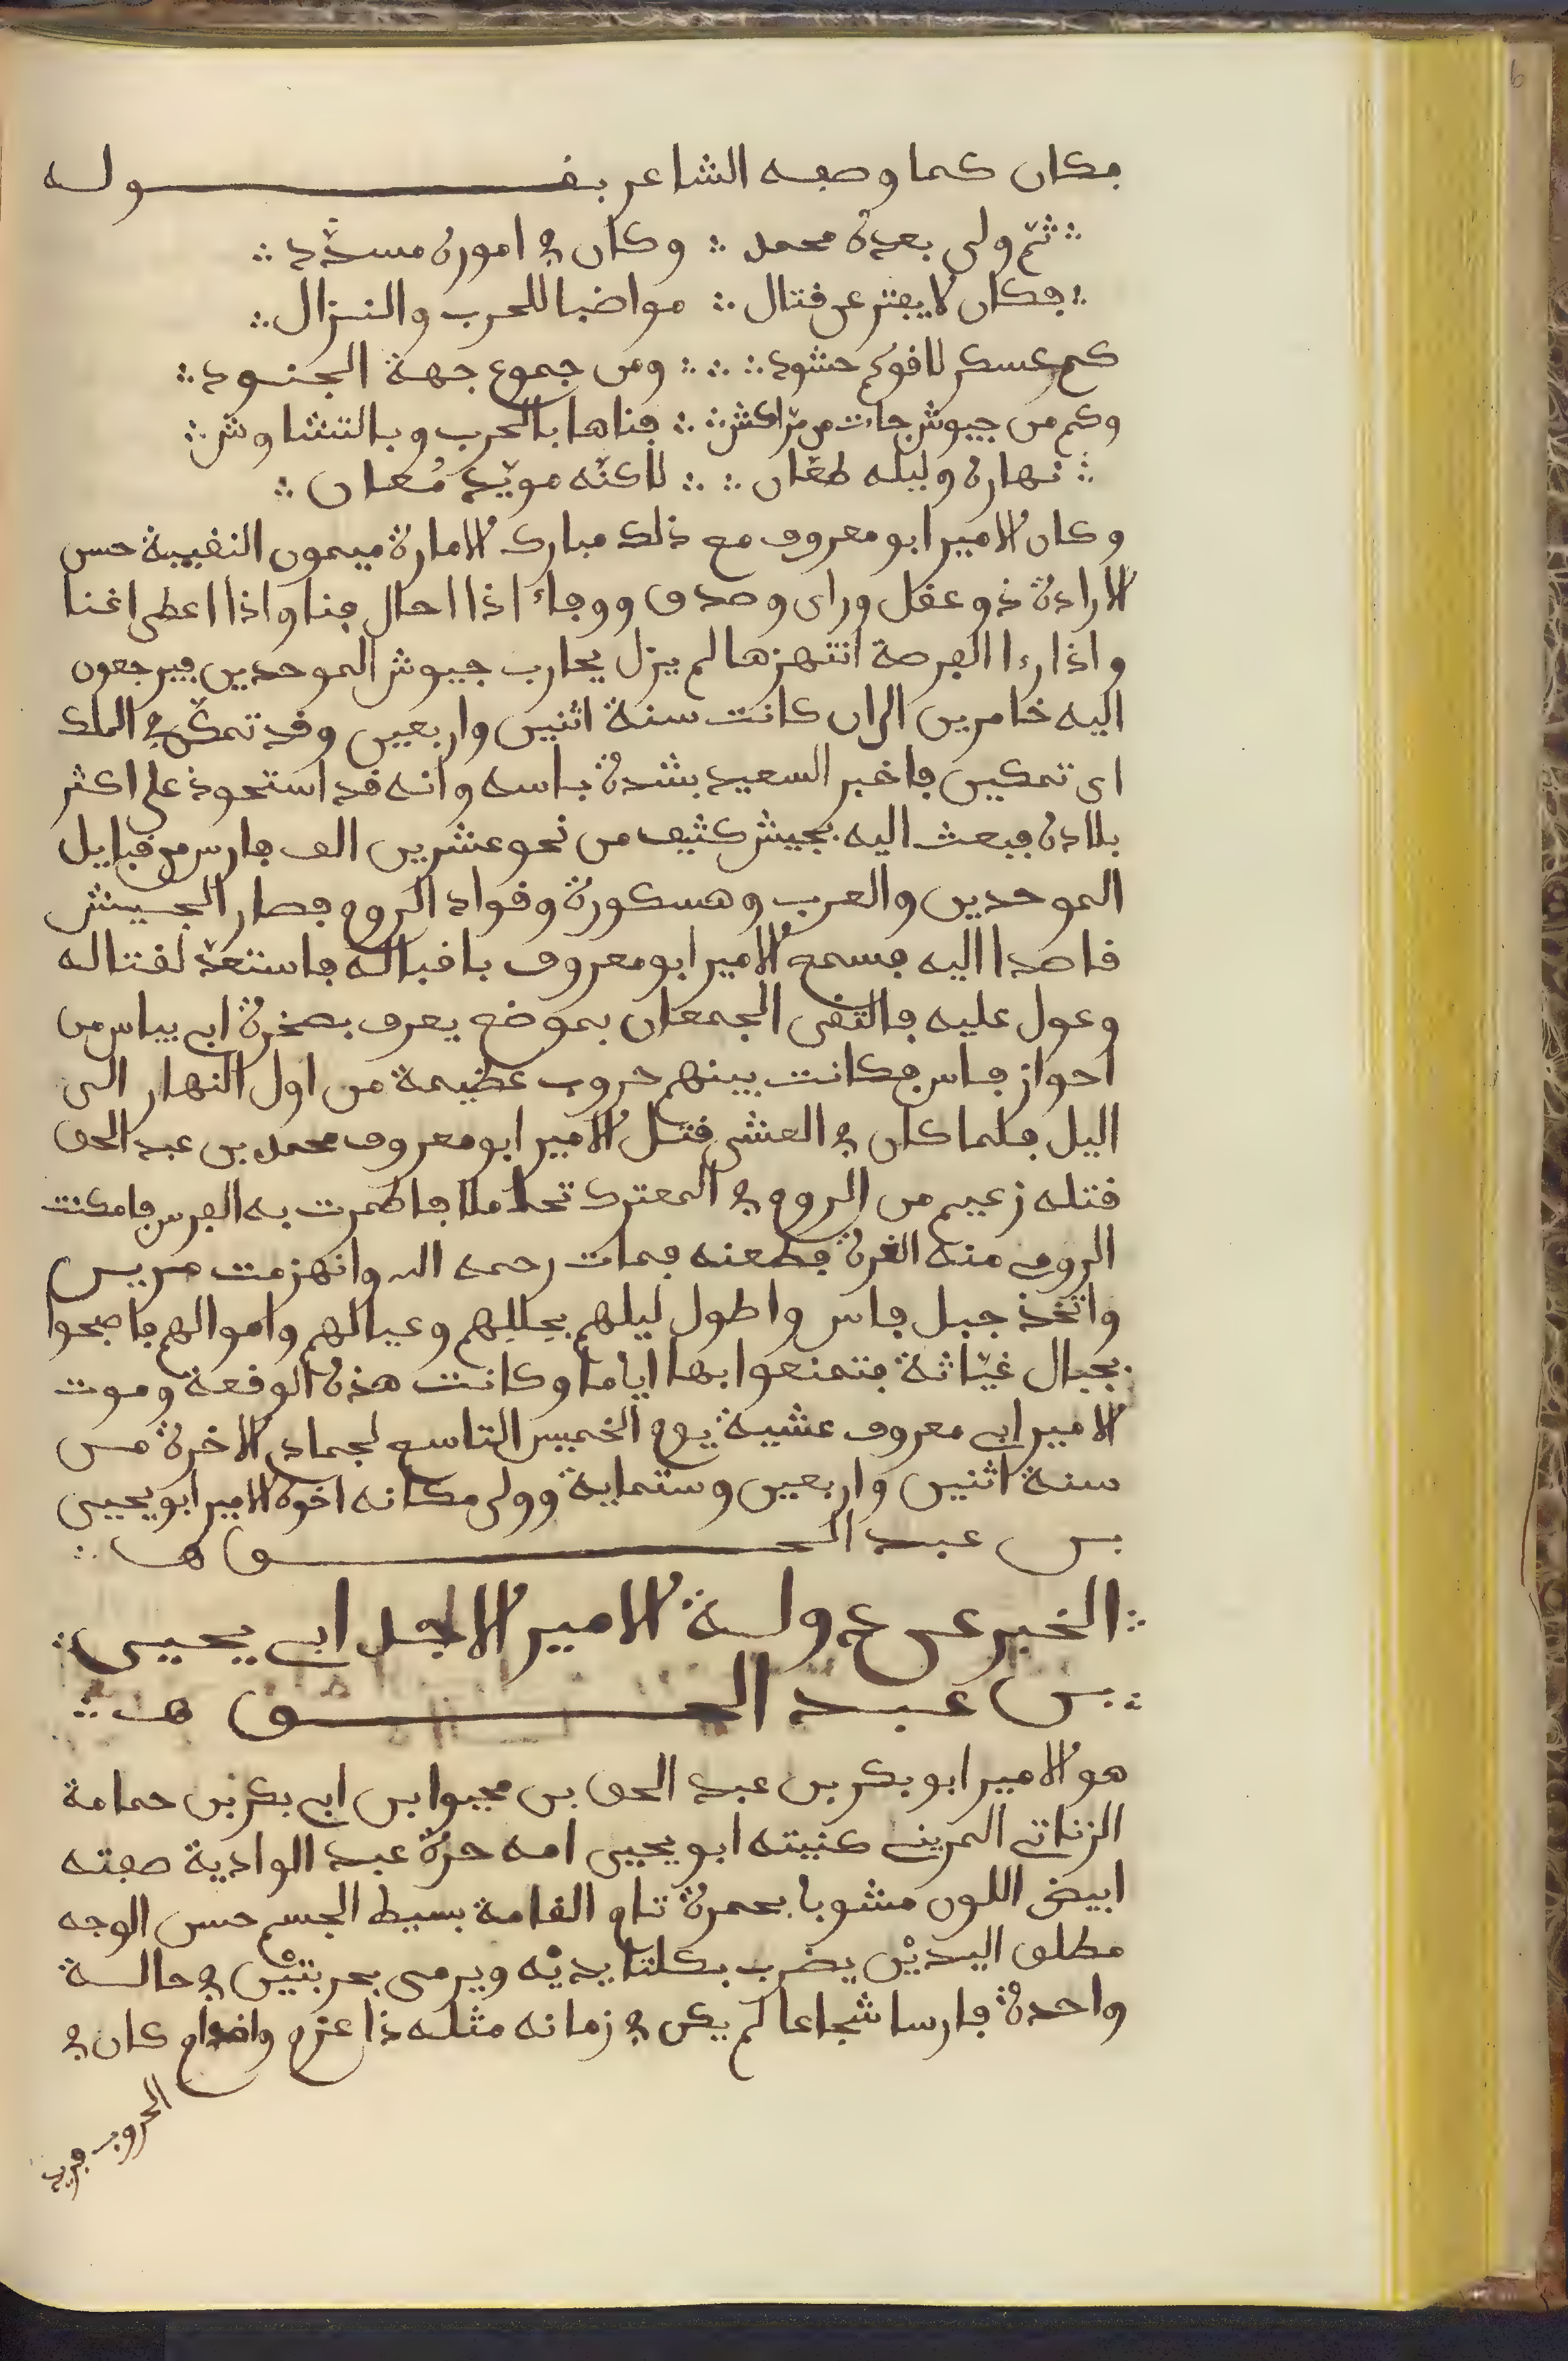 فكان كما وصفه الشاعر بقوله
∴ ثم ولى بعده محمد ∴ وكان في اموره مسدّد ∴
∴ فكان لا يفتر عن قتال ∴ مواضبا للحرب والنزال ∴
كم عسكر لاقوا حشود ∴ ∴ ومن جموع جهة الجنود ∴
وكم من جيوش جات من مرّاكش ∴ ∴ فناها بالحرب وبالتشاوش ∴
∴ نهاره وليله طعّان ∴ ∴ لاكنّه مويّد مُعان ∴
وكان الامير ابو معروف مع ذلك مبارك الامارة ميمون النقيبة حسن
الارادة ذو عقل وراى وصدق ووفاء اذا احال فنا واذا اعطى اغنا
واذا رءا الفرصة انتهزها لم يزل يحارب جيوش الموحدين فيرجعون
اليه خاسرين الى ان كانت سنة اثنين واربعين وقد تمكّن في الملك
اى تمكين فاخبر السعيد بشدة باسه وانه قد استحوذ على اكثر
بلاده فبعث اليه بجيش كثيف من نحو عشرين الف فارس من قبايل
الموحدين والعرب وهسكورة وقواد الروم فصار الجيش
قاصدا اليه فسمع الامير ابو معروف باقباله فاستعدّ لقتاله
وعول عليه فالتقى الجمعان بموضع يعرف بصخرة ابى بياس من
احواز فاس فكانت بينهم حروب عظيمة من اول النهار الى
اليل فلما كان في العشى قتل الامير ابو معروف محمد بن عبد الحق
قتله زعيم من الروم في المعترك تحاملا فاطمرت به الفرس فامكنت
الرومى منه الغرة فطعنه فمات رحمه الله وانهزمت مرين
واتخذ جبل فاس واطول ليلهم بحللهم وعيالهم واموالهم فاصبحوا
بجبال غيّاثة فتمنعوا بها اياما وكانت هذه الوقعة وموت
الامير ابى معروف عشية يوم الخميس التاسع لجمادى الاخرة من
سنة اثنين واربعين وستماية وولى مكانه اخوه الامير ابو يحيى
بن عبد الحق هـ ∴
∴ الخبر عن دولة الامير الاجل ابى يحيى ∴
∴ بن عبد الحق هـ ∴
هو الامير ابو بكر بن عبد الحق بن محيوا بن ابى بكر بن حمامة
الزناتى المرينى كنيته ابو يحيى امه حرّة عبد الوادية صفته
ابيض اللون مشوبا بحمرة تام القامة بسيط الجسم حسن الوجه
مطلق اليديْن يضرب بكلتا يديْه ويرمى بحربتيْن في حالة
واحدة فارسا شجاعا لم يكن في زمانه مثله ذا عزم واقدام كان في
الحروب فريد